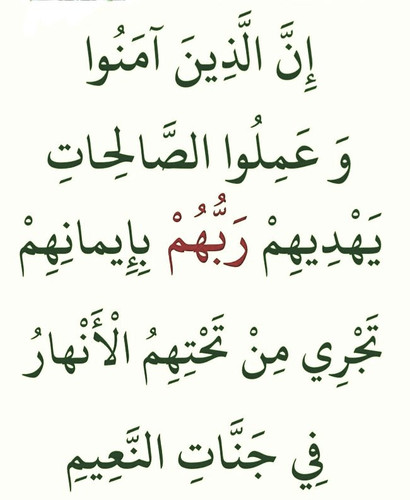 إِنَّ الَّذِينَ آمَنُوا
وَ عَمِلُوا الصَّالِحاتِ
يَهْدِيهِمْ رَبُّهُمْ بِإِيمانِهِمْ
تَجْرِي مِنْ تَحْتِهِمُ الْأَنْهارُ
فِي جَنَّاتِ النَّعِيمِ